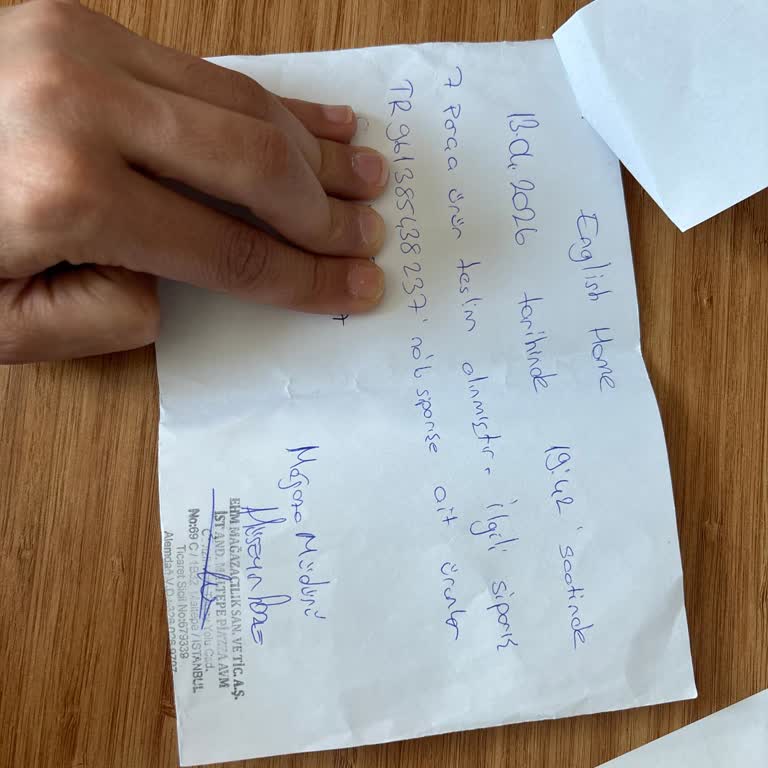 English Home
13.01.2026 tarihinde 19:42' saatinde
7 Parça ürün teslim alınmıştır. ilgili sipariş
TR961385438237' no'lu siparişe ait ürünler
Mağaza Müdürü
EHM MAĞAZACILIK SAN. VE TİC. A.Ş.
İSTAND. MALTEPE PİAZZA AVM
Yolu Cad.
No:69 C / Maltepe / İSTANBUL
Ticaret Sicil No:679339
Alemdağ V.D.